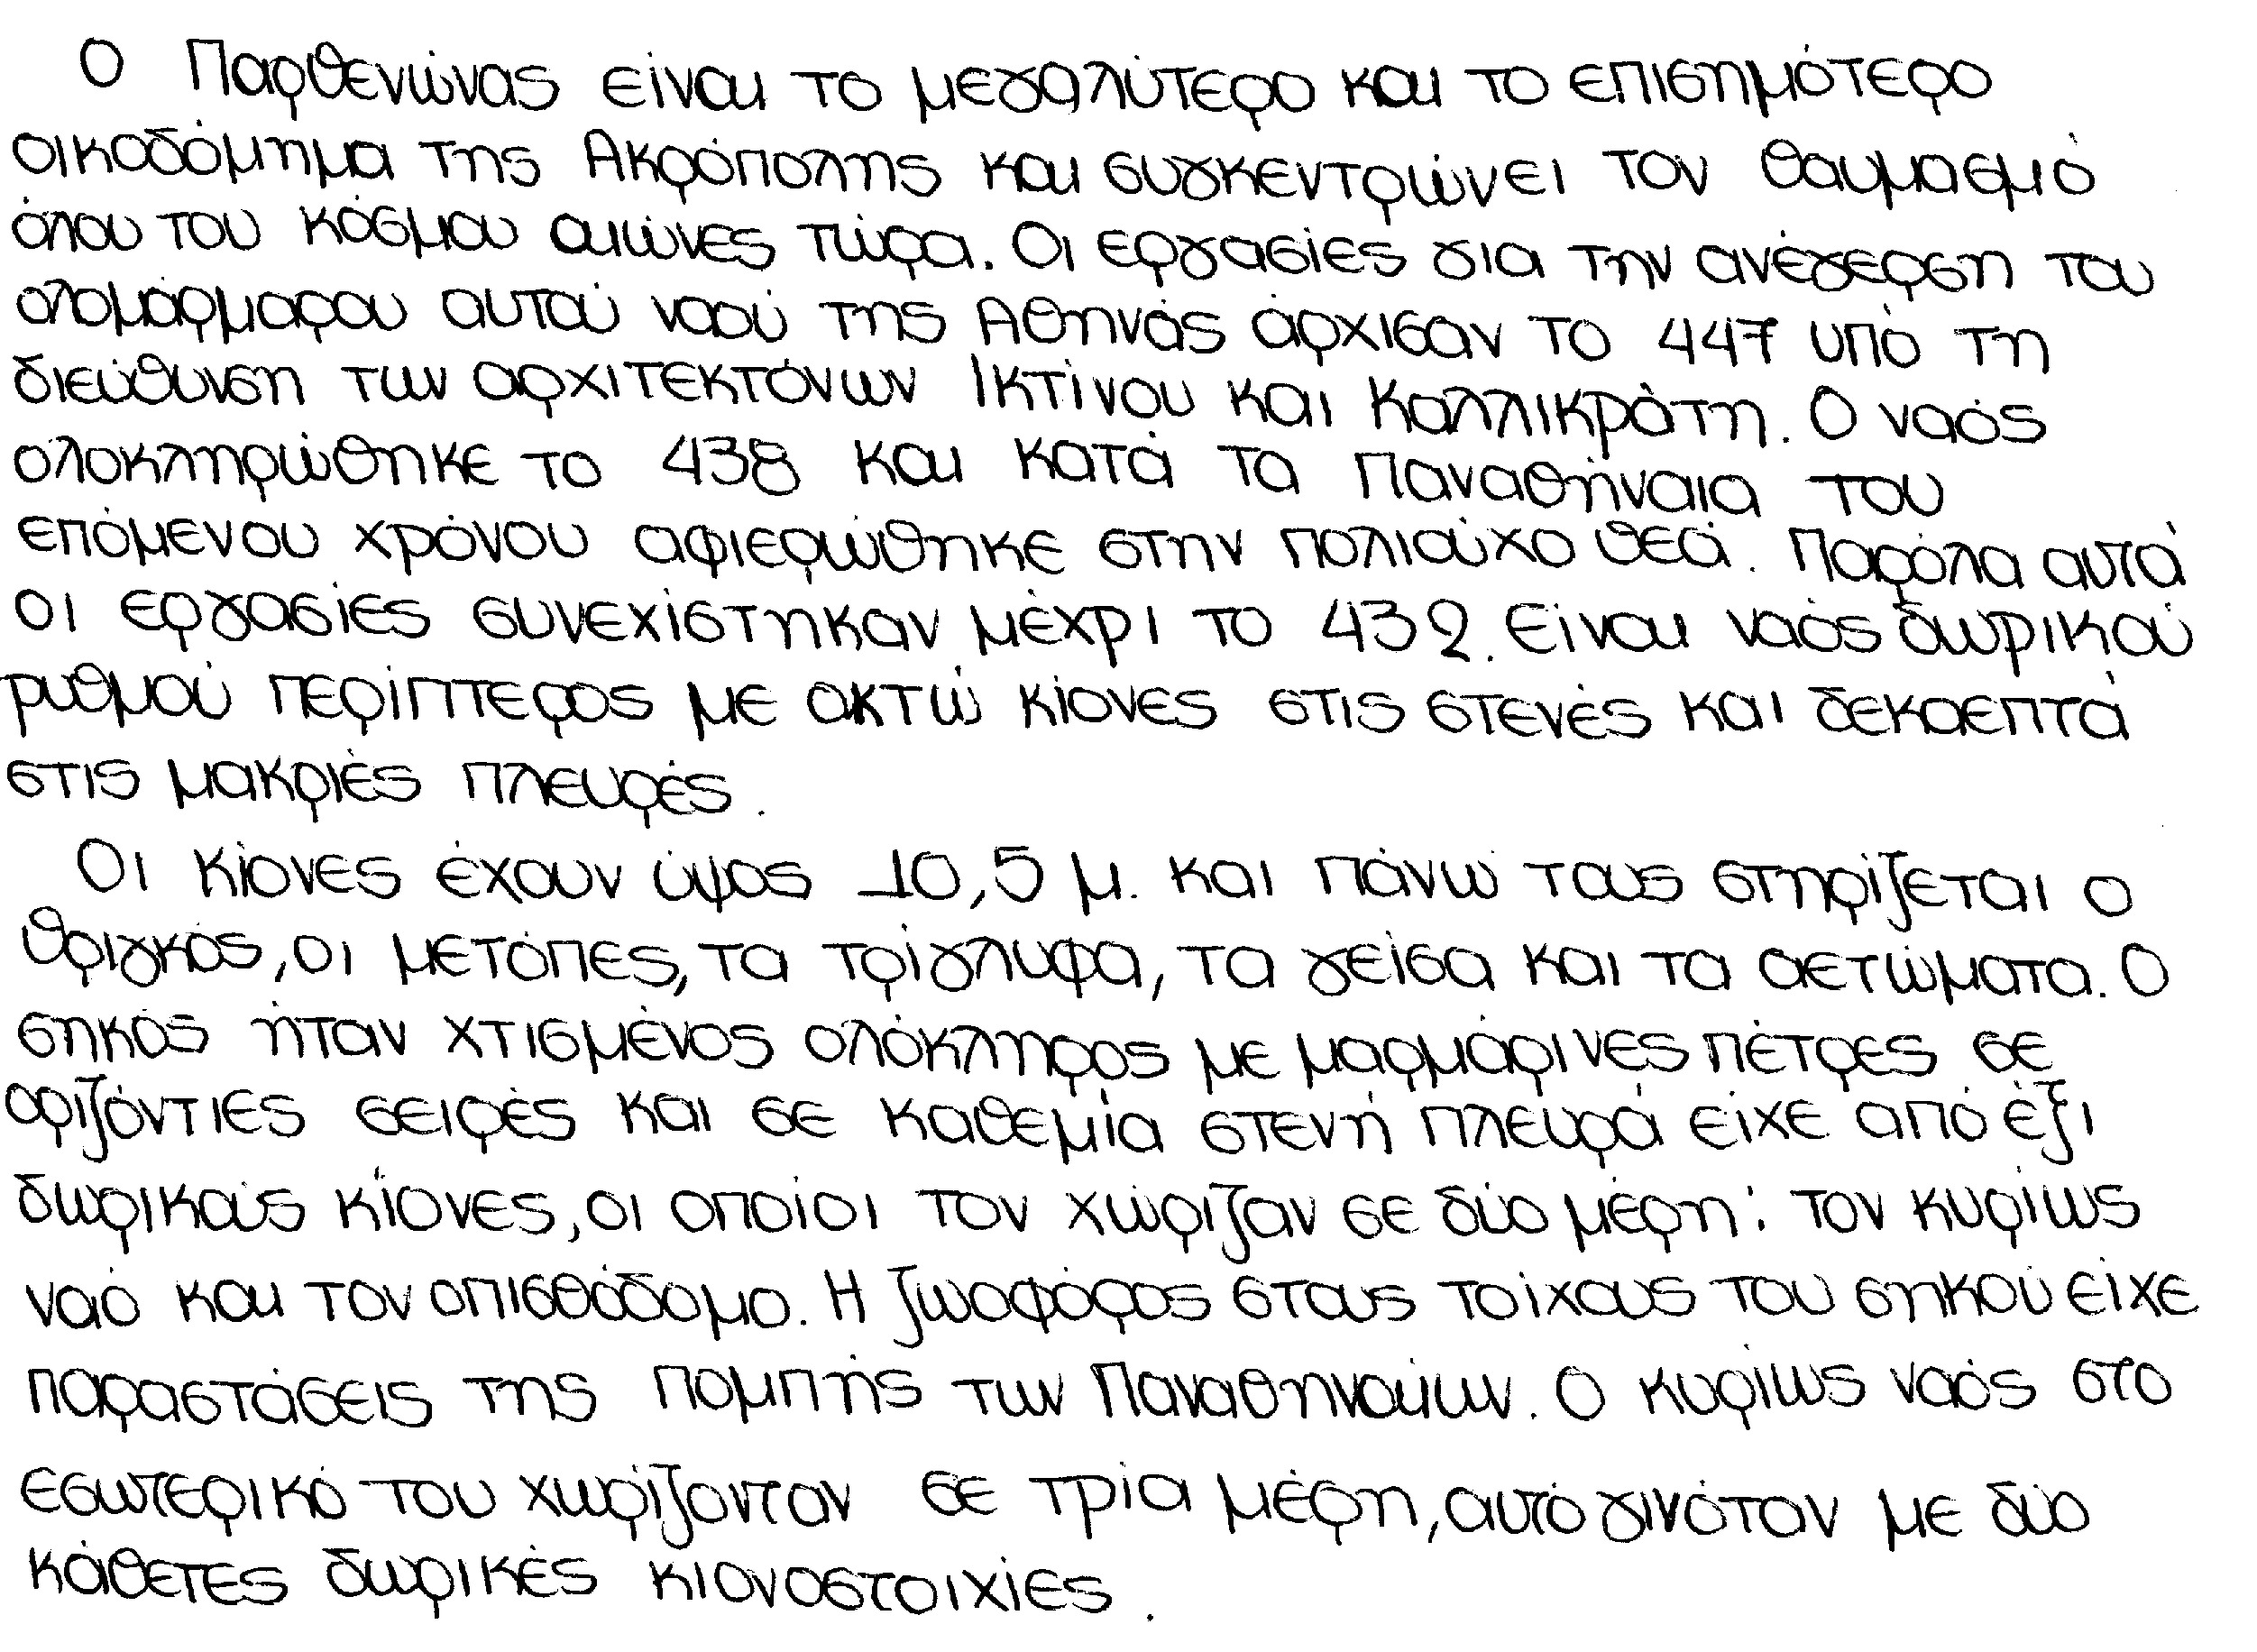 Ο Παρθενώνας είναι το μεγαλύτερο και το επισημότερο
οικοδόμημα της Ακρόπολης και συγκεντρώνει τον θαυμασμό
όλου του κόσμου αιώνες τώρα. Οι εργασίες για την ανέγερση του
ολομάρμαρου αυτού ναού της Αθηνάς άρχισαν το 447 υπό τη
διεύθυνση των αρχιτεκτόνων Ικτίνου και Καλλικράτη. Ο ναός
ολοκληρώθηκε το 438 και κατά τα Παναθήναια του
επόμενου χρόνου αφιερώθηκε στην πολιούχο θεά. Παρόλα αυτά
οι εργασίες συνεχίστηκαν μέχρι το 432. Είναι ναός δωρικού
ρυθμού περίπτερος με οκτώ κίονες στις στενές και δεκαεπτά
στις μακριές πλευρές.
Οι κίονες έχουν ύψος 10,5 μ. και πάνω τους στηρίζεται ο
θριγκός, οι μετόπες, τα τρίγλυφα, τα γείσα και τα αετώματα. Ο
σηκός ήταν χτισμένος ολόκληρος με μαρμάρινες πέτρες σε
οριζόντιες σειρές και σε καθεμία στενή πλευρά είχε από έξι
δωρικούς κίονες, οι οποίοι τον χώριζαν σε δύο μέρη: τον κυρίως
ναό και τον οπισθόδομο. Η ζωοφόρος στους τοίχους του σηκού είχε
παραστάσεις της πομπής των Παναθηναίων. Ο κυρίως ναός στο
εσωτερικό του χωρίζονταν σε τρία μέρη, αυτό γινόταν με δύο
κάθετες δωρικές κιονοστοιχίες.